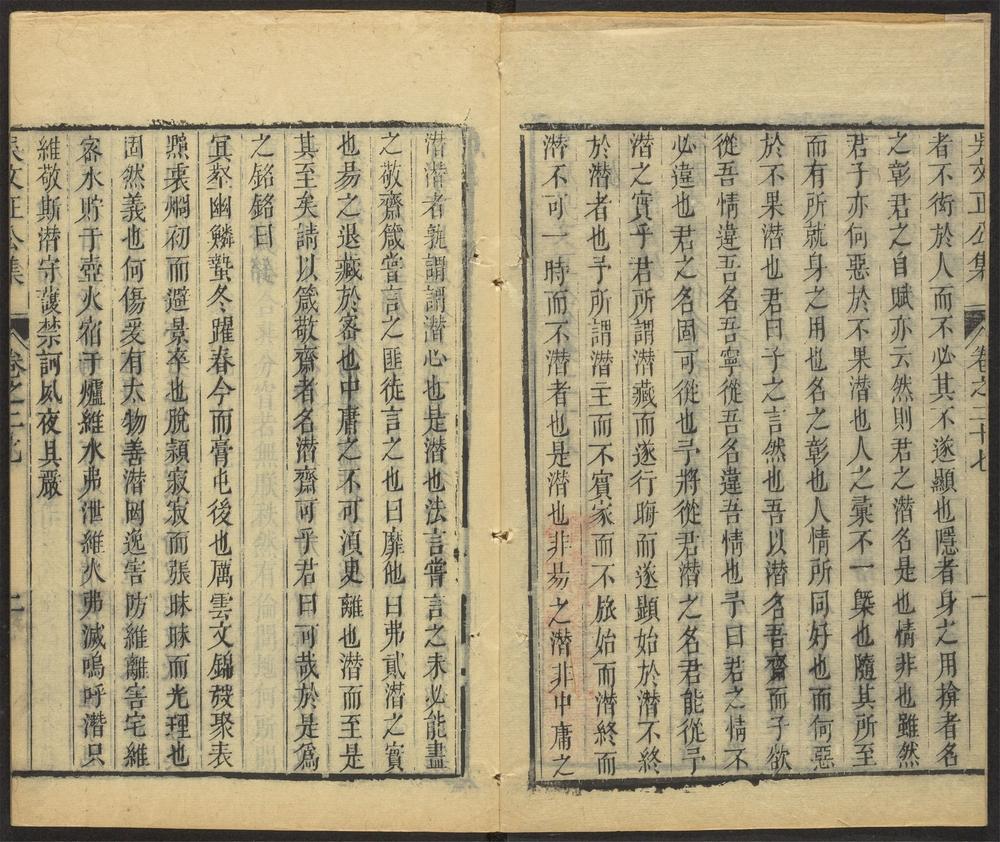 吳文正公集 卷之二十七 一
者不衒於人而不必其不遂顯也隱者身之用揜者名
之彰君之自賦亦云然則君之潛名是也情非也雖然
君子亦何惡於不果潛也人之彙不一槩也隨其所至
而有所就身之用也名之彰也人情所同好也而何惡
於不果潛也君曰子之言然也吾以潛名吾齋而子欲
從吾情違吾名吾寧從吾名違吾情也予曰君之情不
必違也君之名固可從也予將從君潛之名君能從予
潛之實乎君所謂潛藏而遂行晦而遂顯始於潛不終
於潛者也予所謂潛主而不賓家而不旅始而潛終而
潛不可一時而不潛者也是潛也非昜之潛非中庸之
潛潛者孰謂謂潛心也是潛也法言嘗言之未必能盡
之敬齋箴嘗言之匪徒言之也曰靡他曰弗貳潛之實
也昜之退藏於密也中庸之不可湏臾離也潛而至是
其至矣請以箴敬齋者名潛齋可乎君曰可哉於是爲
之銘銘曰
寘壑幽鱗蟄冬躍春今而膏屯後也厲雲文錦發聚表
褧裹烱初而避景卒也脫頴寂寂而張昧昧而光理也
固然義也何傷爰有太物善潛罔逸害防維離害宅維
密水貯于壺火宿于爐維水弗泄維火弗滅嗚呼潛只
維敬斯潛守護禁訶夙夜具嚴
吳文正公集 卷之二十七 二